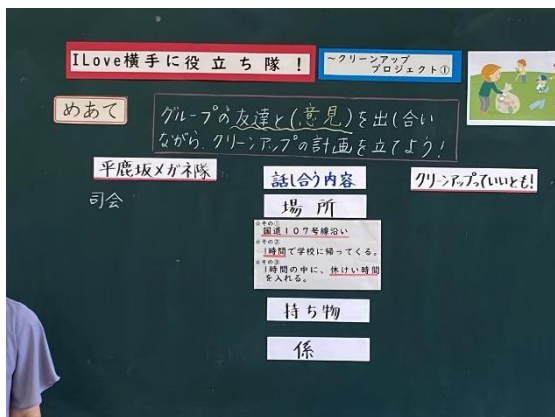 ILove横手に役立ち隊!
~クリーンアップ
プロジェクト①
めあて
グループの友達と(意見)を出し合い
ながら、クリーンアップの計画を立てよう!
平鹿坂メガネ隊
司会
話し合う内容
場所
☆その①
国道107号線沿い
☆その②
1時間で学校に帰ってくる。
☆その③
1時間の中に、休けい時間
を入れる。
持ち物
係
クリーンアップっていいとも!